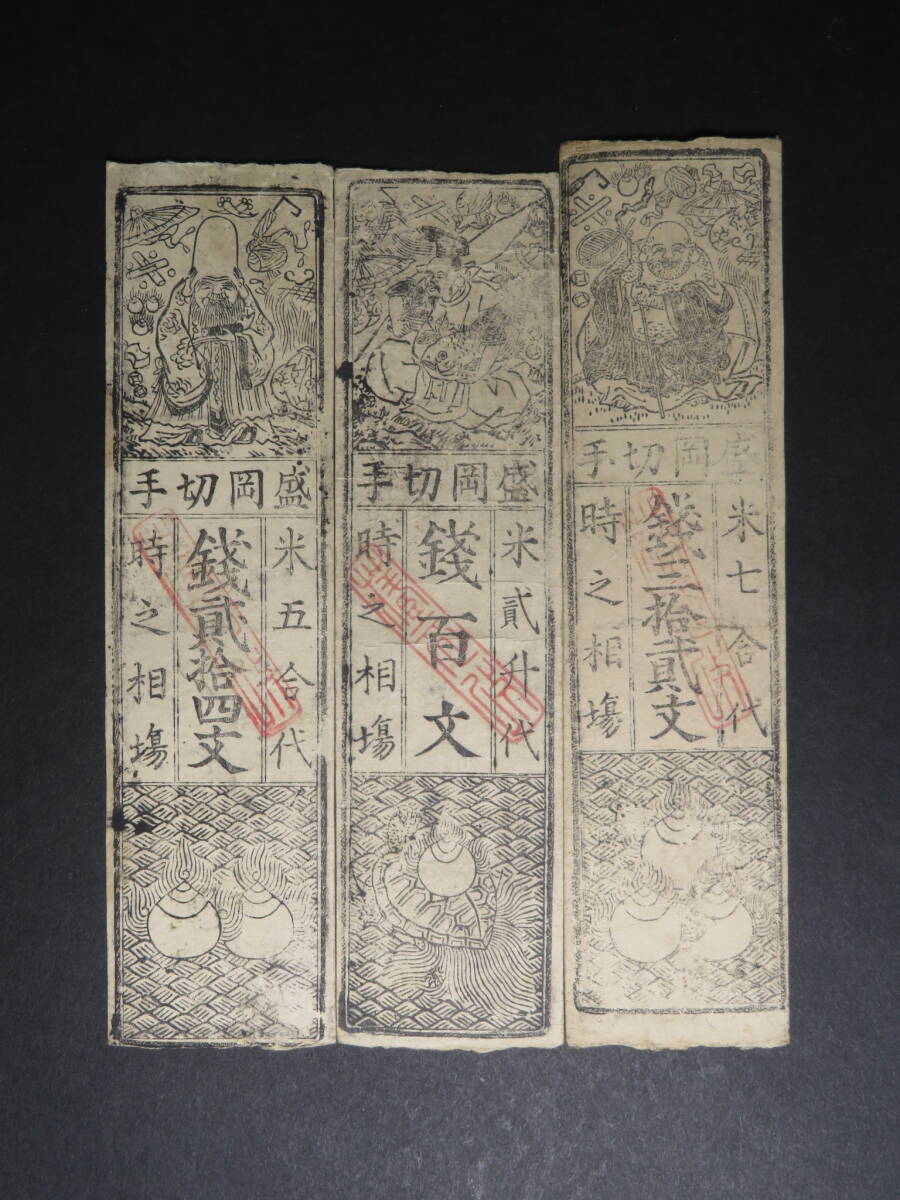 盛岡切手
米五合代
錢貳拾四文
時之相場
盛岡切手
米貳升代
錢百文
時之相場
盛岡切手
米七合代
錢三拾貳文
時之相場